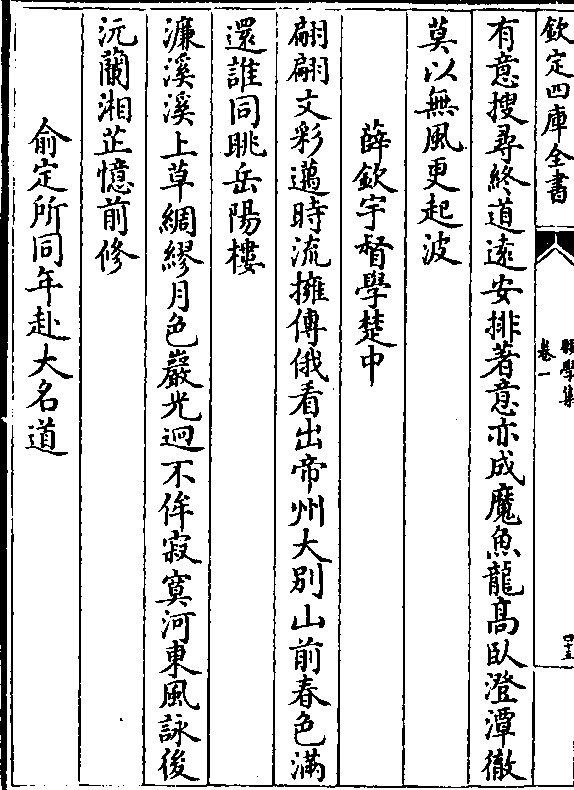 欽定四庫全書
願學集
卷一
四十五
有意搜尋終道遠安排著意亦成魔魚龍高臥澄潭徹
莫以無風更起波
薛欽宇督學楚中
翩翩文彩邁時流擁傳俄看出帝州大別山前春色滿
還誰同眺岳陽樓
濂溪溪上草綢繆月色巖光逈不侔寂寞河東風詠後
沅蘭湘芷憶前修
俞定所同年赴大名道